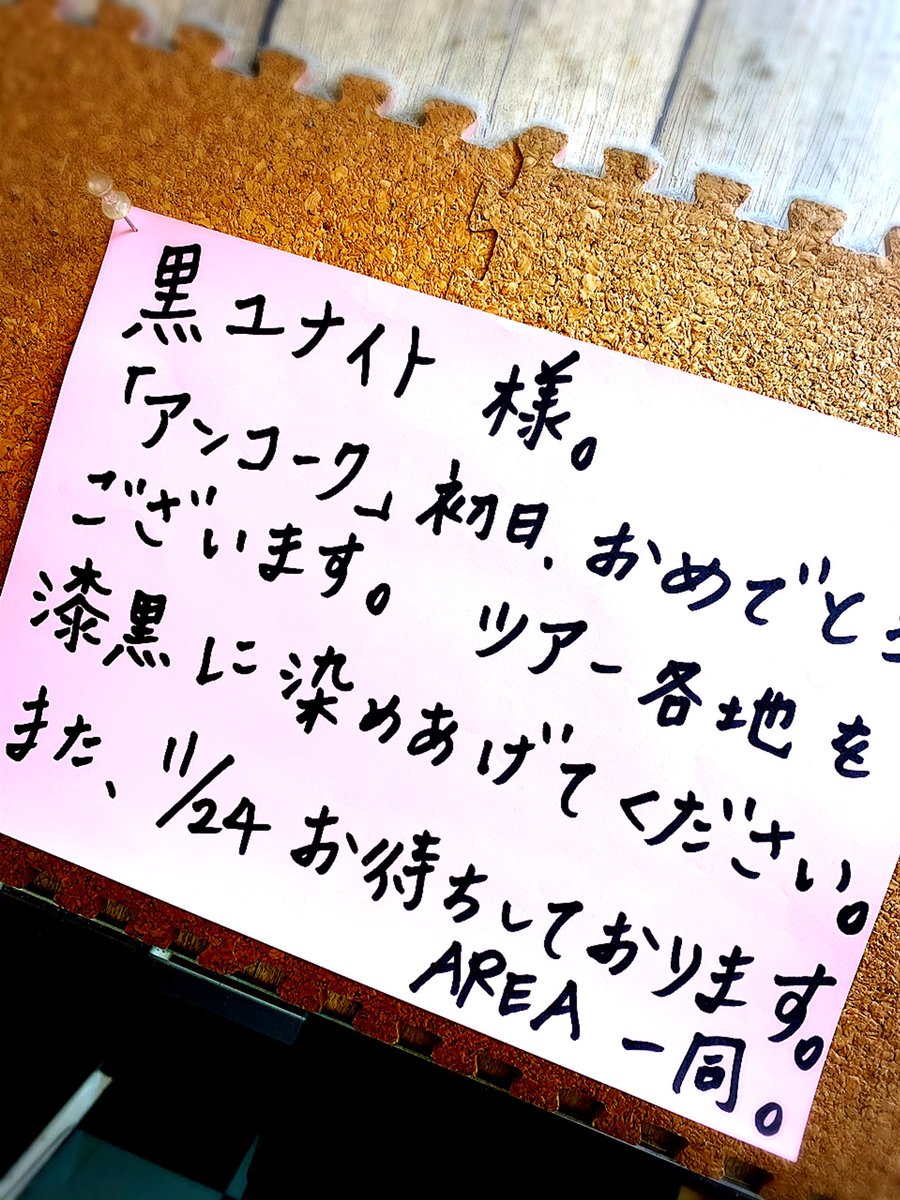 黒ユナイト 様。
「アンコーク」初日、おめでとう
ございます。 ツアー各地を
漆黒に染めあげてください。
また、11/24お待ちしております。
AREA 一同。